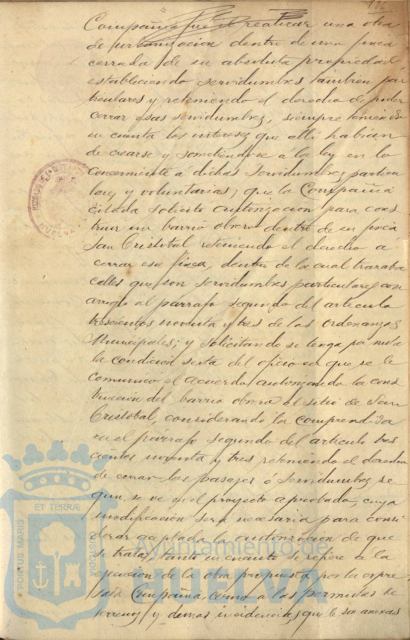 Compañia fué el realizar una obra
de urbanizacion dentro de una finca
cerrada (de su absoluta propiedad
estableciendo servidumbres tambien par-
ticulares y reteniendo el derecho de poder
cerrar esas servidumbres, siempre teniendo
en cuenta los intereses que alli habian
de crearse y sometiendose a la ley en lo
concerniente a dichas servidumbres particu-
lares y voluntarias; que la Compañia
citada solicitó autorizacion para cons-
truir un barrio obrero dentro de su finca
San Cristobal reteniendo el derecho a
cerrar esa finca, dentro de la cual trazaba
calles que son servidumbres particulares con
arreglo al parrafo segundo del articulo
trescientos noventa y tres de las ordenanzas
Municipales; y solicitando se tenga por nula
la condición sexta del oficio en que se le
comunicó el acuerdo autorizando la cons-
trucción del barrio obrero al sitio de San
Cristobal, considerandola comprendida
en el parrafo segundo del articulo tres
cientos noventa y tres reteniendo el derecho
de cerrar los pasajes ó servidumbres se
gun se ve en el proyecto aprobado, cuya
modificación será necesaria para consi
derar aceptada la autorizacion de que
se trata, tanto en cuanto se refiere a la
ejecucion de la obra propuesta por la expre
sada Compañia como a las permutas de
terrenos y demas incidencias que le son anexas
PORTUS MARIS
ET TERRÆ
Ayuntamiento de